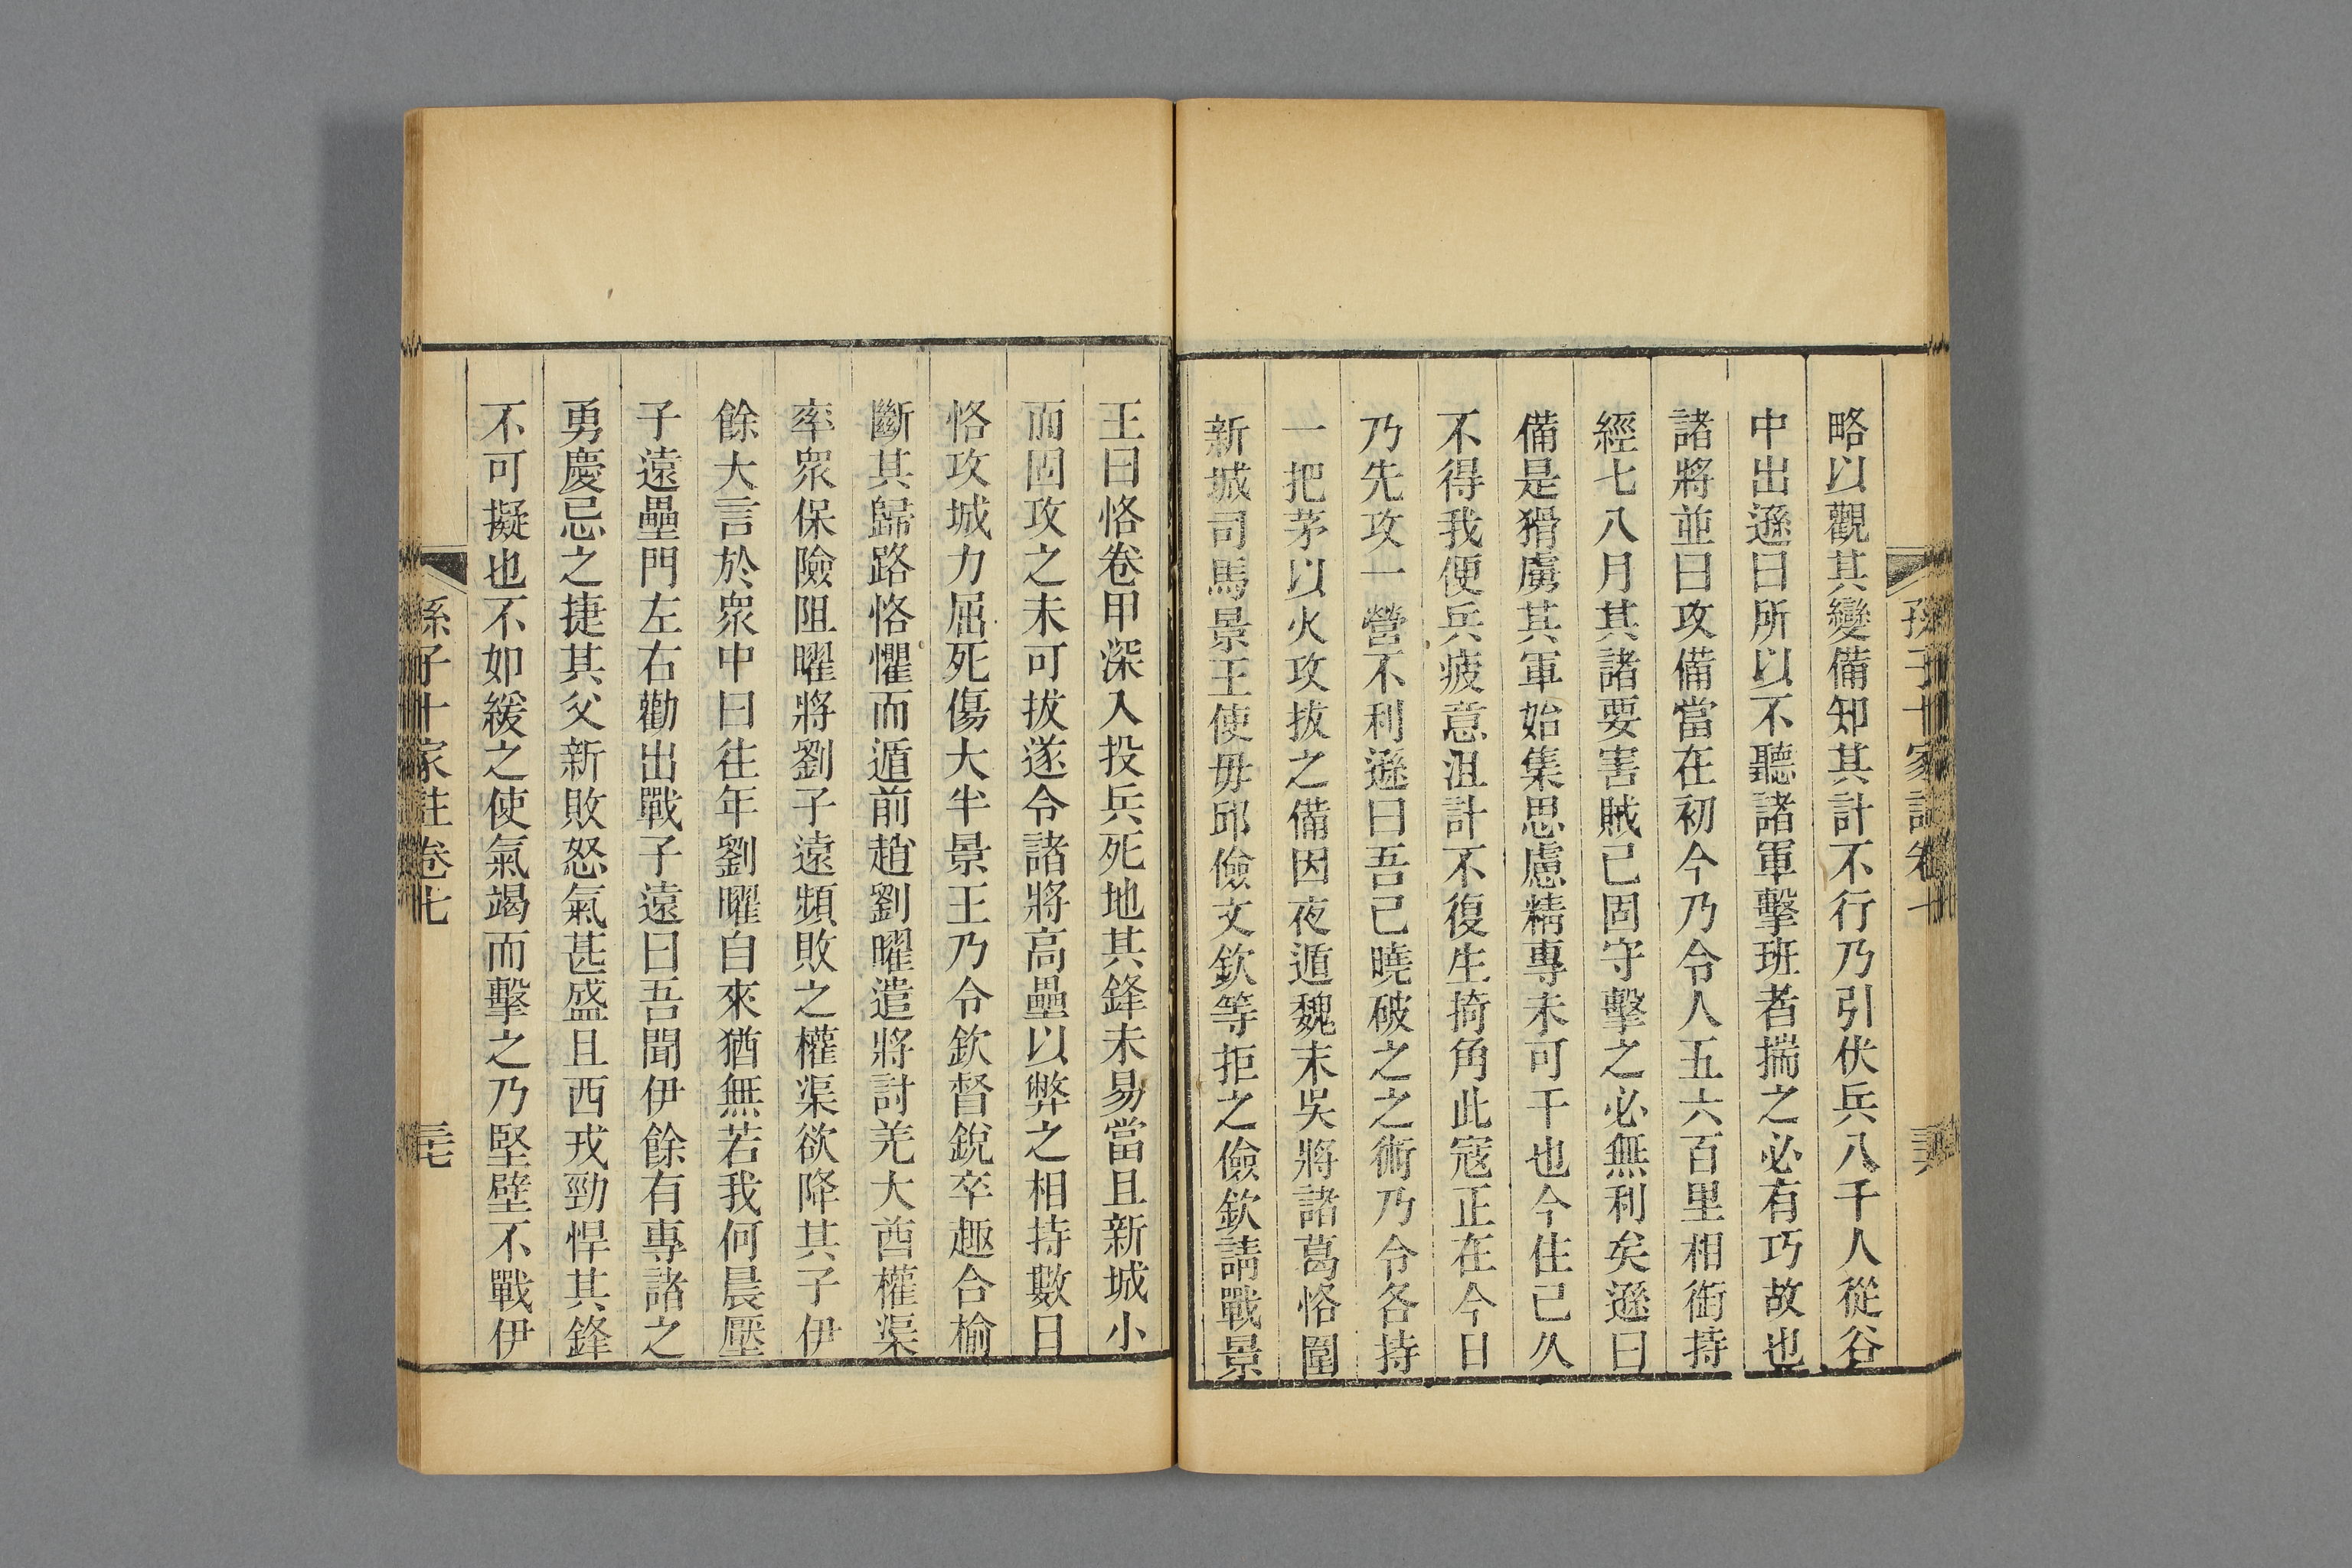 略以觀其變備知其計不行乃引伏兵八千人從谷
中出遜曰所以不聽諸軍擊班者揣之必有巧故也
諸將並曰攻備當在初今乃令人五六百里相銜持
經七八月其諸要害賊已固守擊之必無利矣遜曰
備是猾虜其軍始集思慮精專未可干也今住已久
不得我便兵疲意沮計不復生掎角此寇正在今日
乃先攻一營不利遜曰吾已曉破之之術乃令各持
一把茅以火攻拔之備因夜遁魏末吳將諸葛恪圍
新城司馬景王使毋邱儉文欽等拒之儉欽請戰景
王曰恪卷甲深入投兵死地其鋒未易當且新城小
而固攻之未可拔遂令諸將高壘以弊之相持數日
恪攻城力屈死傷大半景王乃令欽督銳卒趣合榆
斷其歸路恪懼而遁前趙劉曜遣將討羌大酋權渠
率眾保險阻曜將劉子遠頻敗之權渠欲降其子伊
餘大言於眾中曰往年劉曜自來猶無若我何晨壓
子遠壘門左右勸出戰子遠曰吾聞伊餘有專諸之
勇慶忌之捷其父新敗怒氣甚盛且西戎勁悍其鋒
不可擬也不如緩之使氣竭而擊之乃堅壁不戰伊
孫子十家註卷七